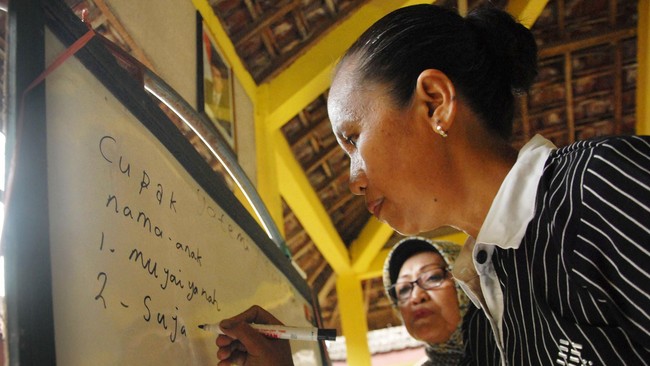 Cupak
nama-anak
1- muyaiyanah
2- Suja